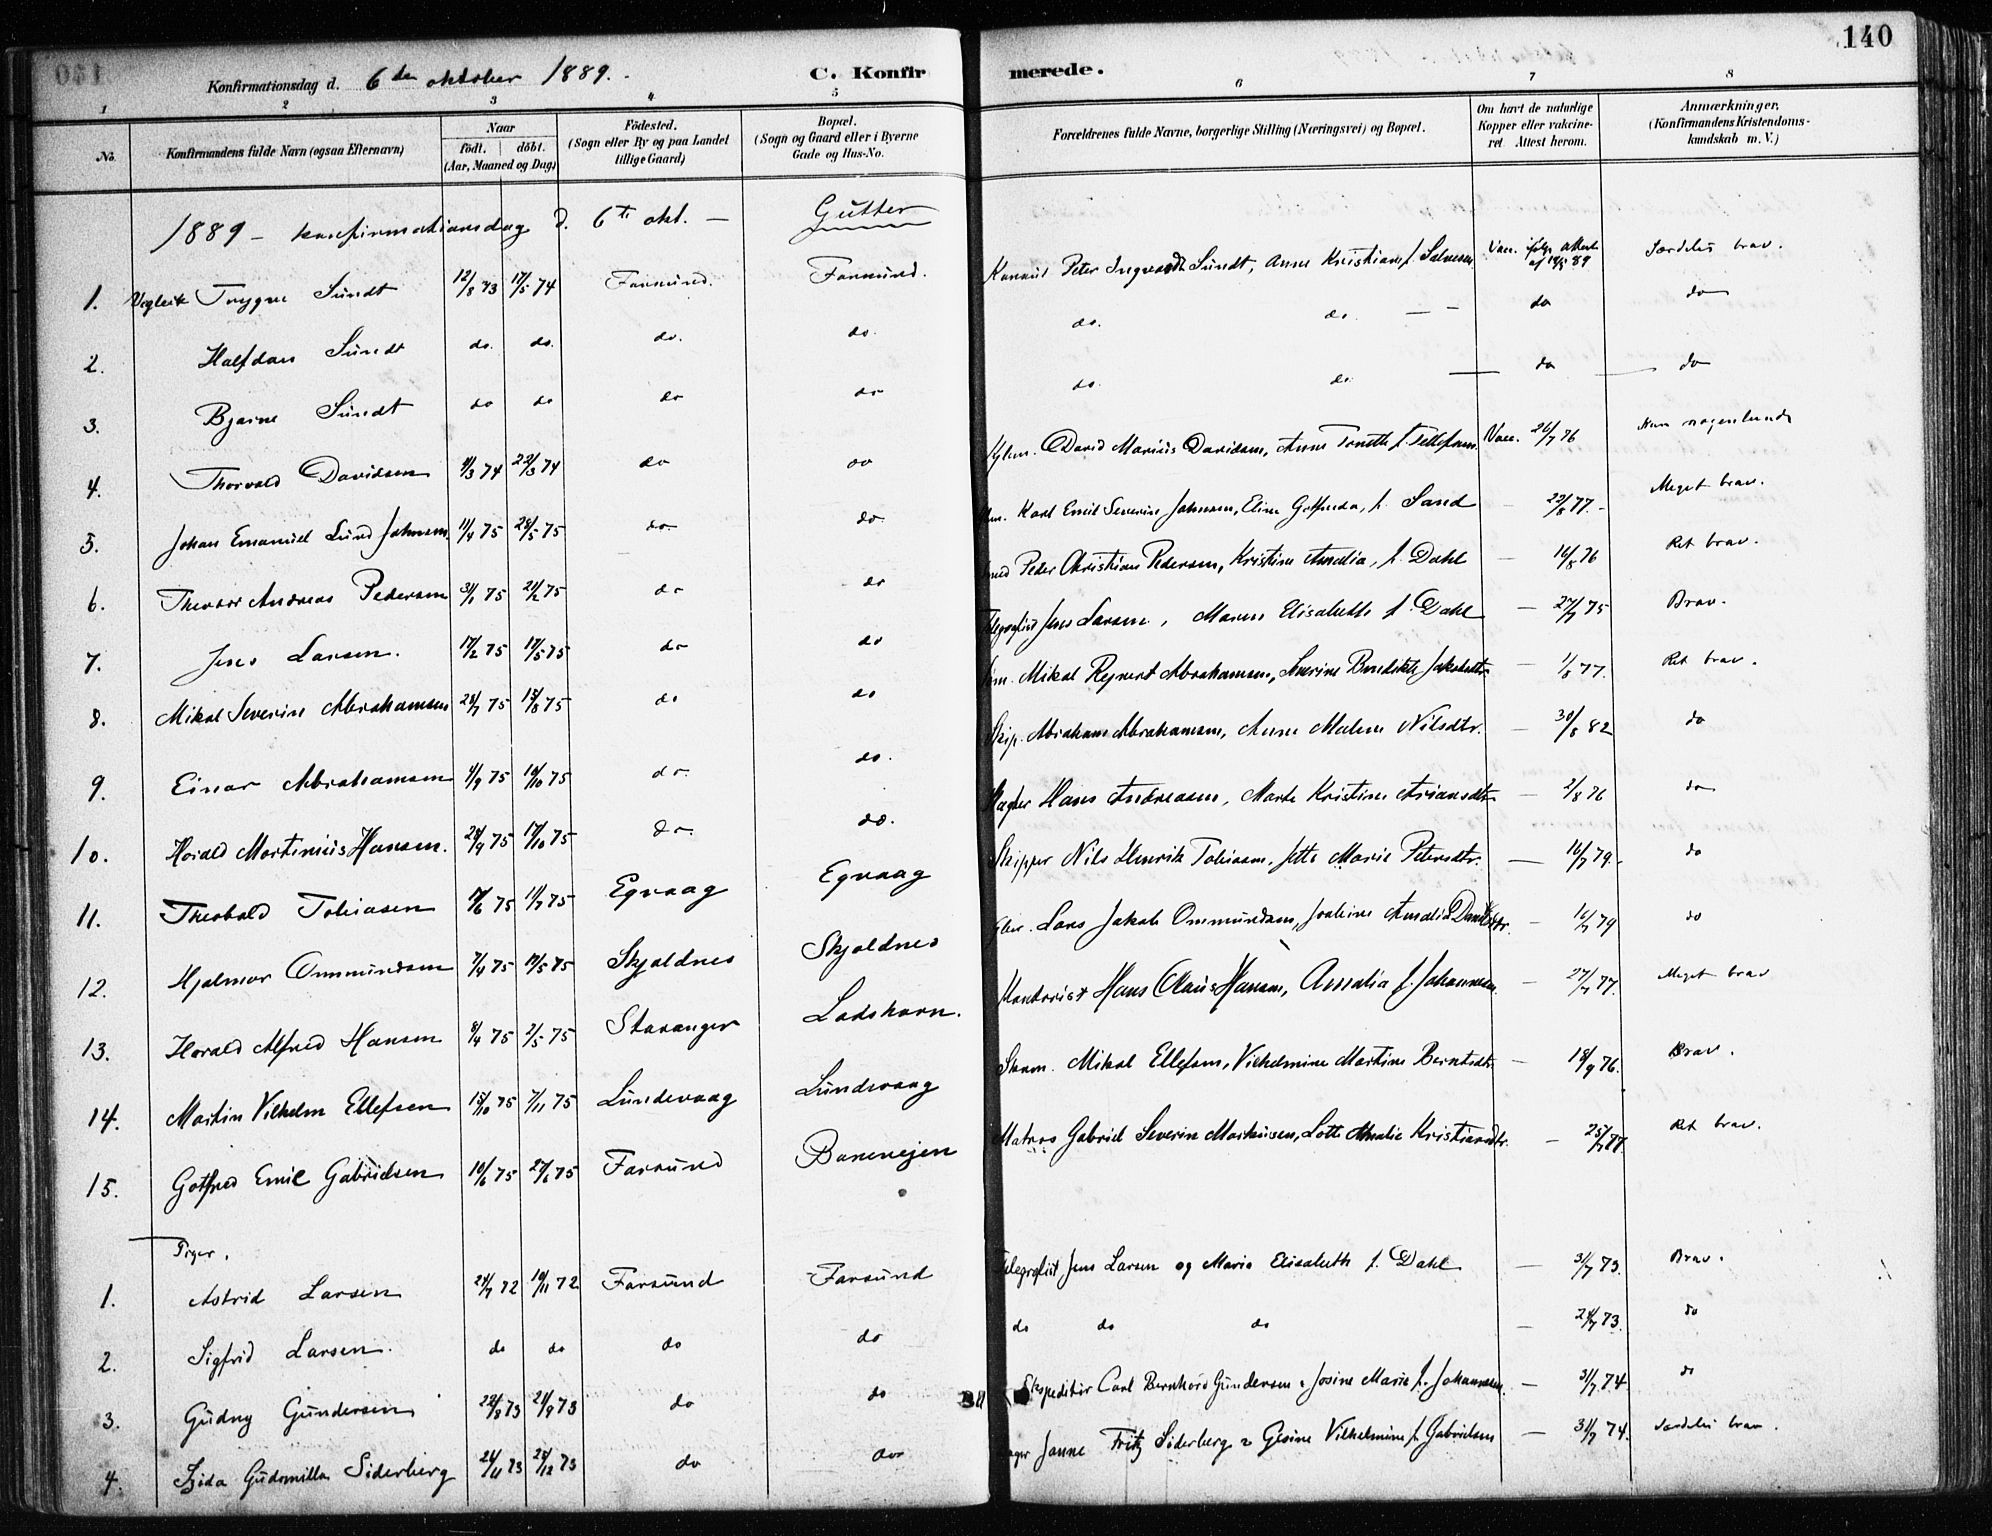 140
Konfirmationsdag d. 6te oktober 1889. C. Konfirmerede.
1 2 3 4 5 6 7 8
No. Konfirmandens fulde Navn (ogsaa Efternavn) Naar født. døbt. (Aar, Maaned og Dag) Fødested. (Sogn eller By og paa Landet tillige Gaard) Bopæl. (Sogn og Gaard eller i Byerne Gade og Hus-No. Forældrenes fulde Navne, borgerlige Stilling (Næringsvei) og Bopæl. Om havt de naturlige Kopper eller vakcineret Attest herom. Anmærkninger. (Konfirmandens Kristendomskundskab m. V.)
1889 - konfirmationsdag d. 6te okt. — Gutter
1. Trygve Sundt 12/8 73 17/5 74 Farsund. Farsund. Peter Sundt, Anne Kristiane f. Salvesen Vacc. ifølge Attest af 89 Særdeles brav.
2. Halfdan Sundt do. do. do. do. do. do. — — do do
3. Bjarne Sundt do do do do do. do — do — do
4. Thorvald Davidsen 4/3 74 22/3 74 do do David Marius Davidsen, Anne Tonette f. Tellefsen. Vacc. 26/7 76 Kun nogenlunde
5. Johan Emanuel Lund Johnsen 11/4 75 28/5 75 do. do. Karl Emil Severin Johnsen, Eline Gotfreda, f. Sand — 22/8 77. Meget brav.
6. Theodor Andreas Pedersen 31/1 75 21/2 75 do do Peter Christian Pedersen, Kristine Amalia, f. Dahl — 16/8 76 Ret brav.
7. Jens Larsen. 17/2 75 17/5 75 do do Telegrafist Jens Larsen, Maren Elisabeth f. Dahl — 27/7 75 Brav.
8. Mikal Severin Abrahamsen 28/7 75 15/8 75 do do Mikal Reinert Abrahamsen, Severine Bendikte Jakobsdtr — 1/8 77. Ret brav.
9. Einar Abrahamsen 4/9 75 10/10 75 do. do. Skip. Abraham Abrahamsen, Anne Malene Nilsdtr. — 30/8 82 do
10. Harald Martinius Hansen. 24/9 75 17/10 75 do. do. Hans Andreasen, Marte Kristine Ariansdtr — 2/8 76 do
11. Theobald Tobiasen 75 11/7 75 Egvaag Egvaag Skipper Nils Henrik Tobiasen, Jette Marie Petersdtr. — 16/7 79. do
12. Hjalmar Ommundsen 7/4 75 17/5 75 Skjoldnes Skjoldnes Lars Jakob Ommundsen, Amalia — 16/7 79 do
13. Harald Alfred Hansen 8/4 75 2/5 75 Stavanger Ladshavn. Kontorist Hans Olaus Hansen, Amalia f. Johannesen. — 27/7 77. Meget brav
14. Martin Vilhelm Ellefsen 15/10 75 7/11 75 Lundevaag Lundevaag Mikal Ellefsen, Vilhelmine Martine Berntsdtr — 18/9 76. Brav.
15. Gotfred Emil Gabrielsen 10/6 75 27/6 75 Farsund Banevejen Matros Gabriel Severin Markussen, Lotte Amalie Kristiansdtr. — 25/7 77. Ret brav.
Piger.
1. Astrid Larsen 24/7 72 10/11 72 Farsund Farsund Telegrafist Jens Larsen og Maria Elisabeth f. Dahl — 31/7 73. Brav.
2. Sigfrid Larsen. do do do do do do do — 73. do
3. Gudny Gundersen 22/8 73 21/9 73 do do Ekspeditør Carl Bernhard Gundersen, Josine Marie f. Johannesen. — 31/7 74 do
4. Gudomilla Söderberg 24/11 73 25/12 73 do do Janne Fritz Söderberg Gesine Vilhelmine f. Gabrielsen — 31/7 74. Særdeles brav.